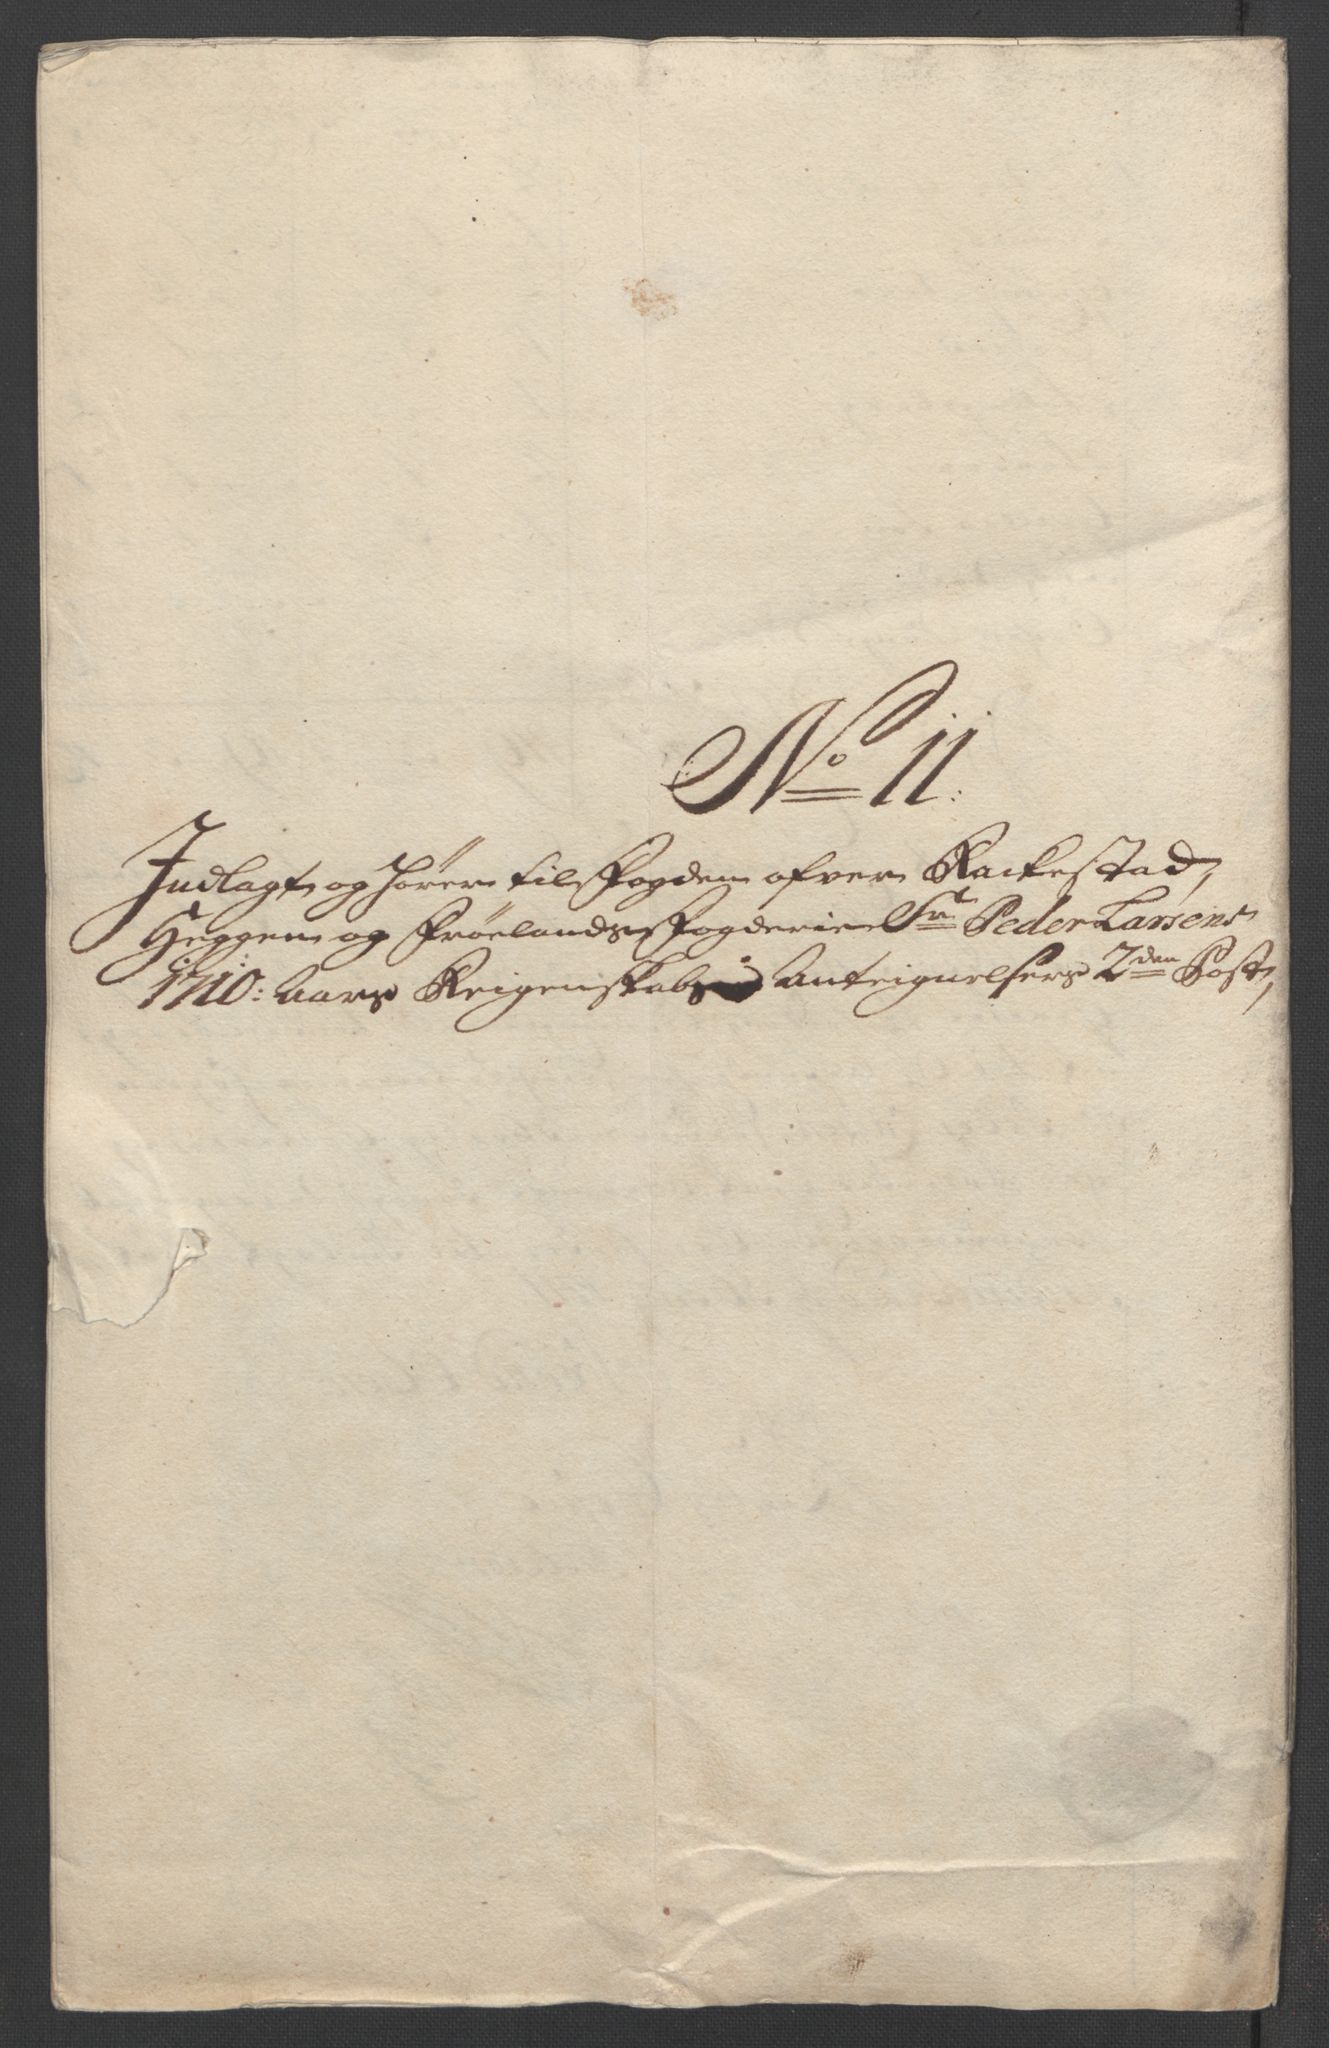 No 11:
Indlagt og hører til Fogden ofver Rackestad,
Heggen og Frøelands Fogderie Sr Peder Larsens
1710: aars Reigenskabs Anteignelsers 2den Post,